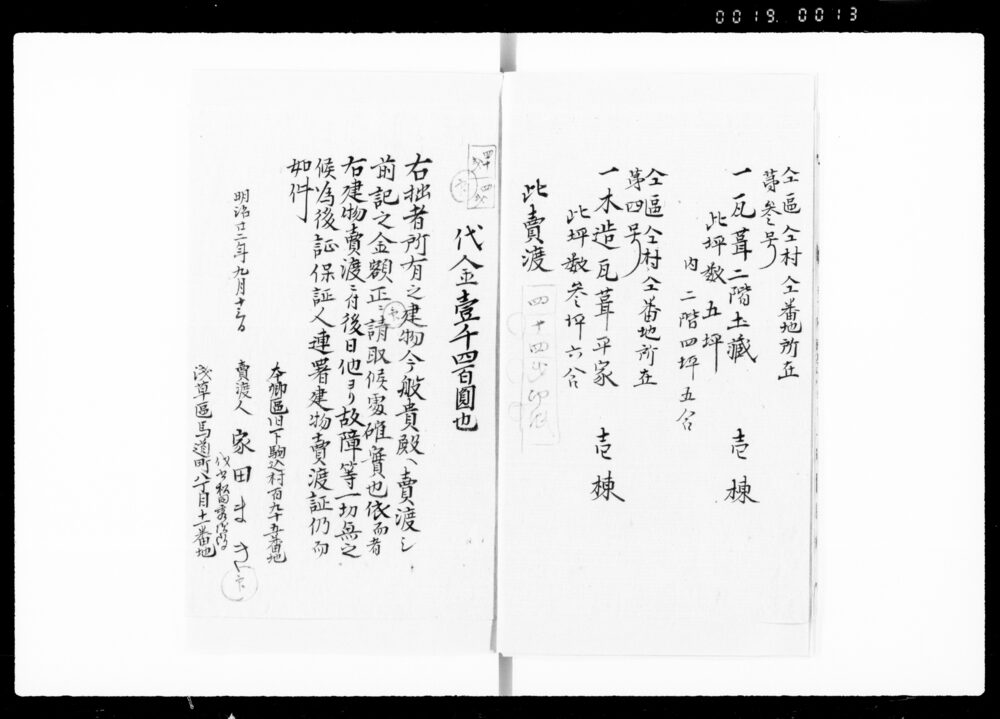 0019 0013
仝區仝村仝番地所在
第参号
一瓦葺二階土藏　壱棟
此坪数五坪
内二階四坪五合
仝區仝村仝番地所在
第四号
一木造瓦葺平家　壱棟
此坪数参坪六合
此賣渡
代金壹千四百圓也
右拙者所有之建物今般貴殿ヘ賣渡シ
前記之金額正ニ請取候處確實也依而者
右建物賣渡ニ付後日他ヨリ故障等一切無之
候為後証保証人連署建物賣渡証仍而
如件
明治廿二年九月十三日
本郷區旧下駒込村百九十五番地
賣渡人　家田まき
浅草區馬道町八丁目十一番地